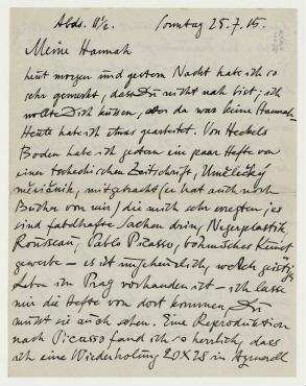 Abds. 11½. Sonntag 25.7.15.
Meine Hannah
heut morgen und gestern Nacht habe ich so
sehr gemerkt, dass Du nicht nah bist; ich
wollte Dich küssen, aber da war keine Hannah.
Heute habe ich etwas gearbeitet. Von Heckels
Boden habe ich gestern ein paar Hefte von
einer tschechischen Zeitschrift, Umělecký
měsíčník, mitgebracht (er hat auch noch
Bücher von mir) die mich sehr erregten; es
sind fabelhafte Sachen drin, Negerplastik,
Rousseau, Pablo Picasso, böhmisches Kunst
gewerbe – es ist ungeheuerlich, welch geistiges
Leben in Prag vorhanden ist – ich lasse
mir die Hefte von dort kommen, Du
musst sie auch sehen. Eine Reproduktion
nach Picasso fand ich so herrlich, dass
ich eine Wiederholung 20 x 28 in Aquarell